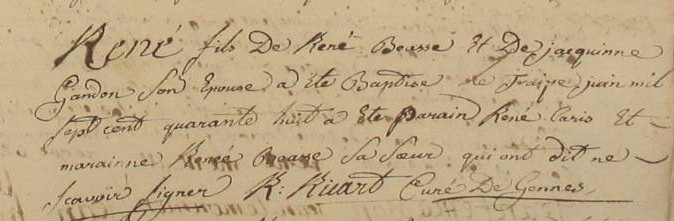 René fils De René Bousse Et De jacquinne
Gandon Son Epouse a Ete Baptise le Traize juin mil
sept cent quarante huit a Ete parain René Caris Et
marainne Renée Bousse Sa Sœur qui ont dit ne
Scavoir signer R: Ruart Curé De Gennes